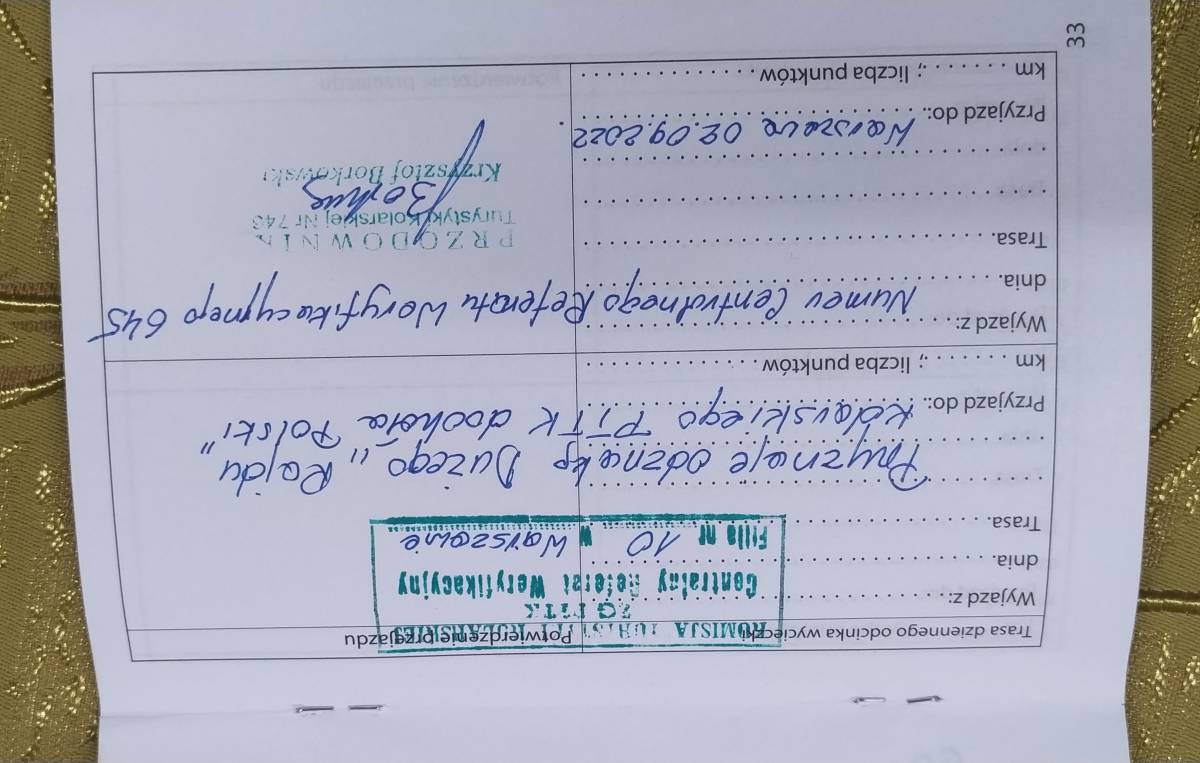 Trasa dziennego odcinka wycieczki
Potwierdzenie przejazdu
KOMISJA TURYSTYKI KOLARSKIEJ
ZG PTTK
Centralny Referat Weryfikacyjny
Filia nr 10 w Warszawie
Wyjazd z:
dnia
Trasa
Przyznaje odznakę Dużego „Rajdu
Kolarskiego PTTK dookoła Polski"
Przyjazd do:
km ; liczba punktów
Wyjazd z:
Numer Centralnego Referatu Weryfikacyjnego 645
dnia
Trasa
PRZODOWNIK
Turystyki Kolarskiej Nr 743
Krzysztof Borkowski
Warszawa 02.09.2022
Przyjazd do:
km ; liczba punktów
33